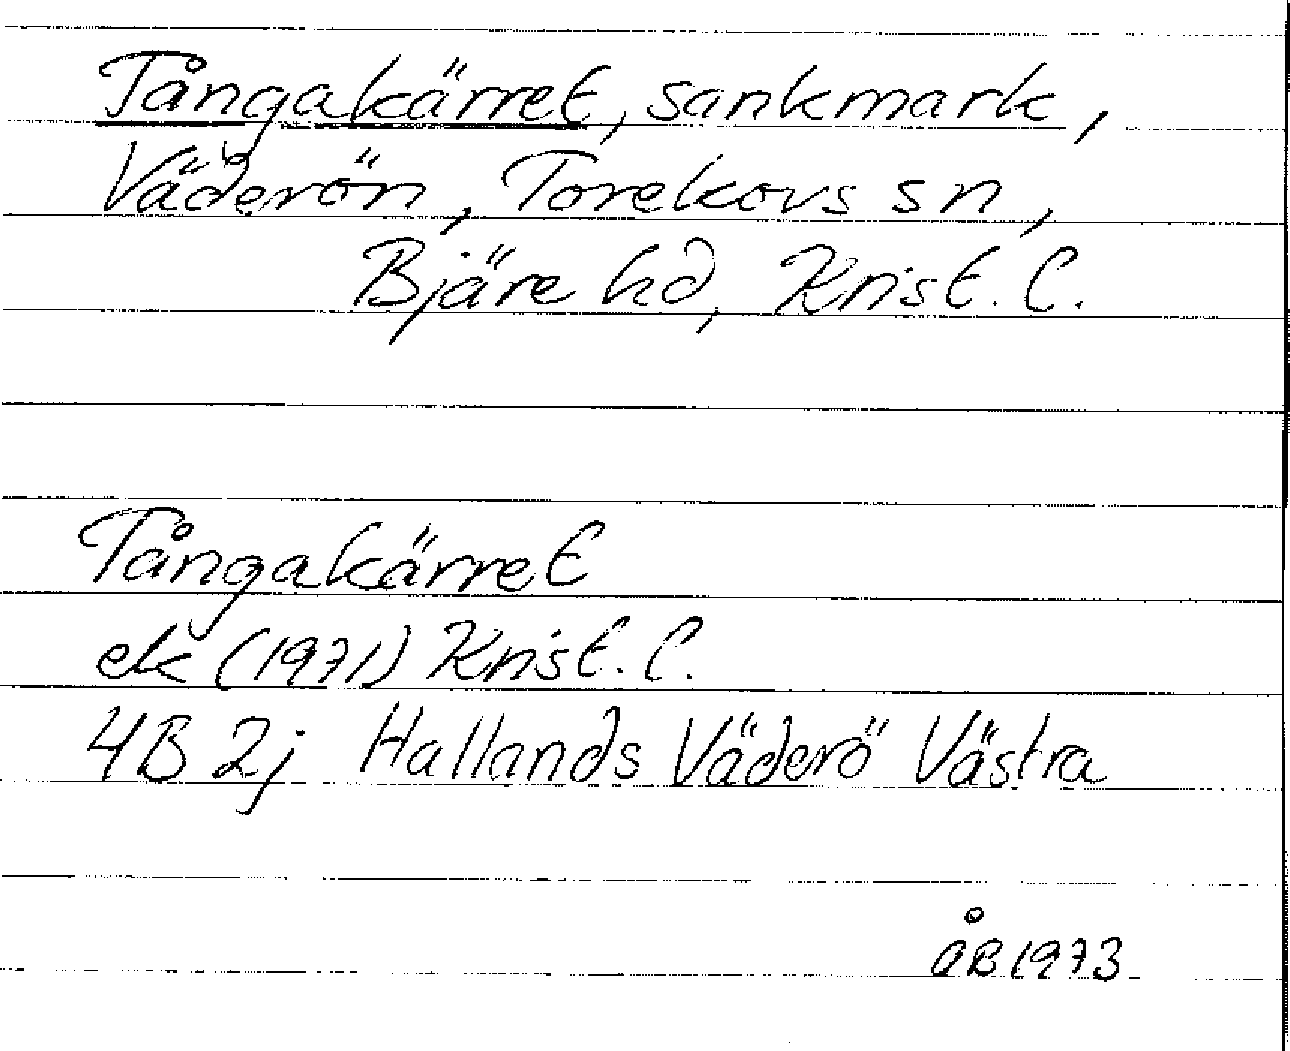 Tångakärret, sankmark,
Väderön, Torekovs sn,
Bjäre hd, Krist. l.
Tångakärret
ek (1971) Krist. l.
4B 2j Hallands Väderö Västra
ÅB 1973